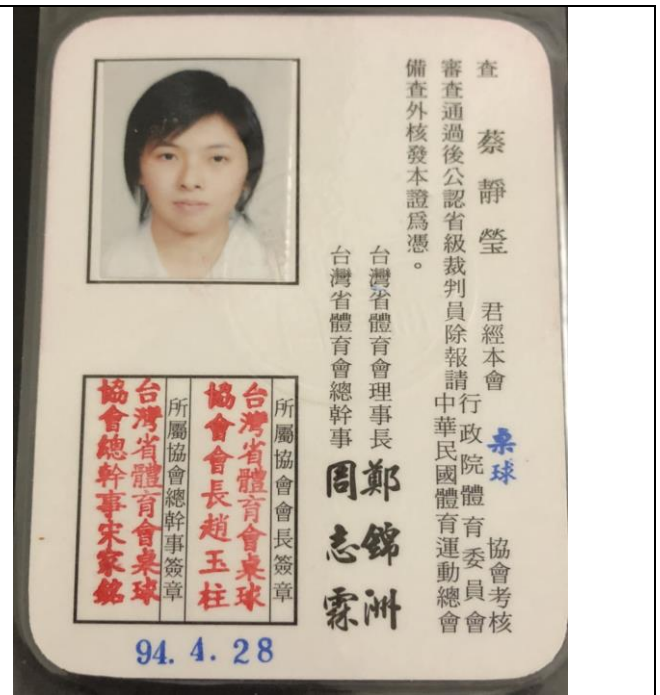 查 蔡靜瑩 君經本會 桌球 協會考核
審查通過後公認省級裁判員除報請行政院體育委員會中華民國體育運動總會
備查外核發本證爲憑。
台灣省體育會理事長 鄭錦洲
台灣省體育會總幹事 周志霖
所屬協會會長簽章
台灣省體育會桌球
協會會長趙玉柱
所屬協會總幹事簽章
台灣省體育會桌球
協會總幹事宋家銘
94. 4. 28